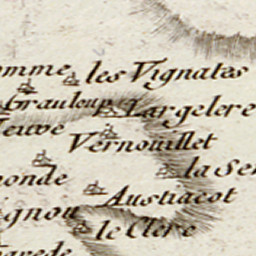 omme les Vignates
Grauloup Largelere
Neuve
Vernouillet
la Ser
onde
Austiacot
ignou
le Clere